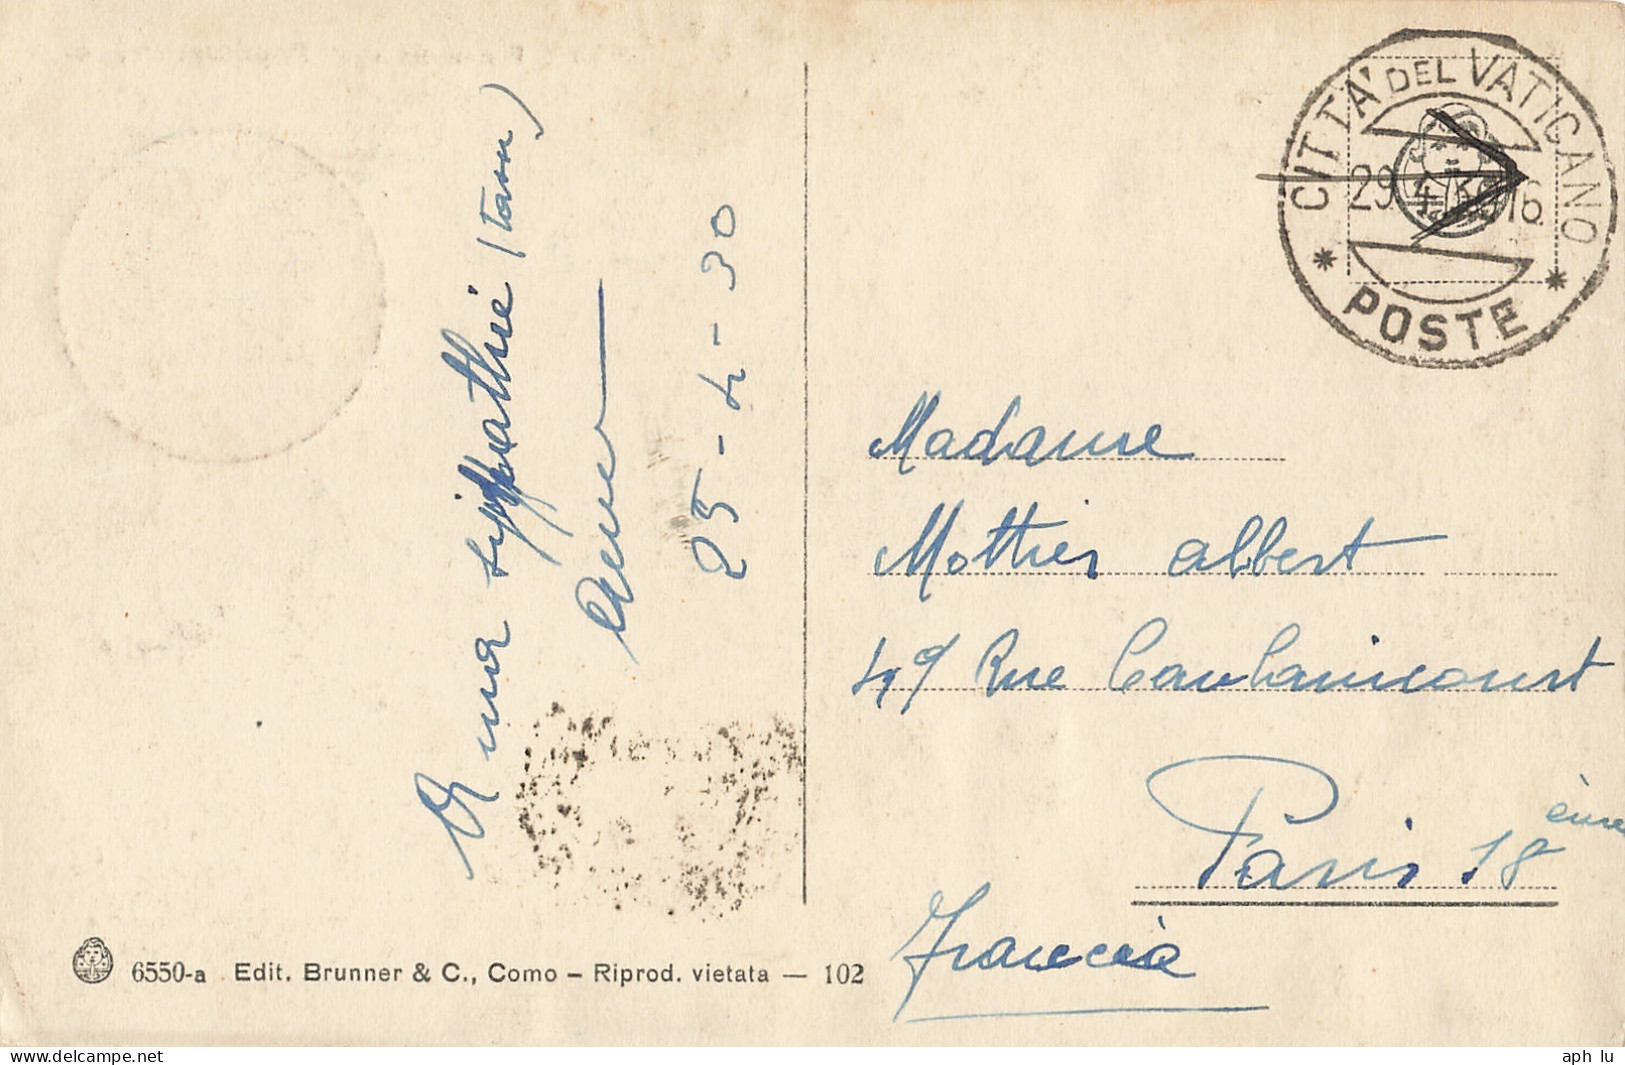 CITTA' DEL VATICANO
29. 4. 30 16
POSTE
25-4-30
Madame
Mothier albert
49 Rue Caulaincourt
Paris 18 ème
Francia
6550-a Edit. Brunner & C., Como – Riprod. vietata — 102
aph lu
www.delcampe.net